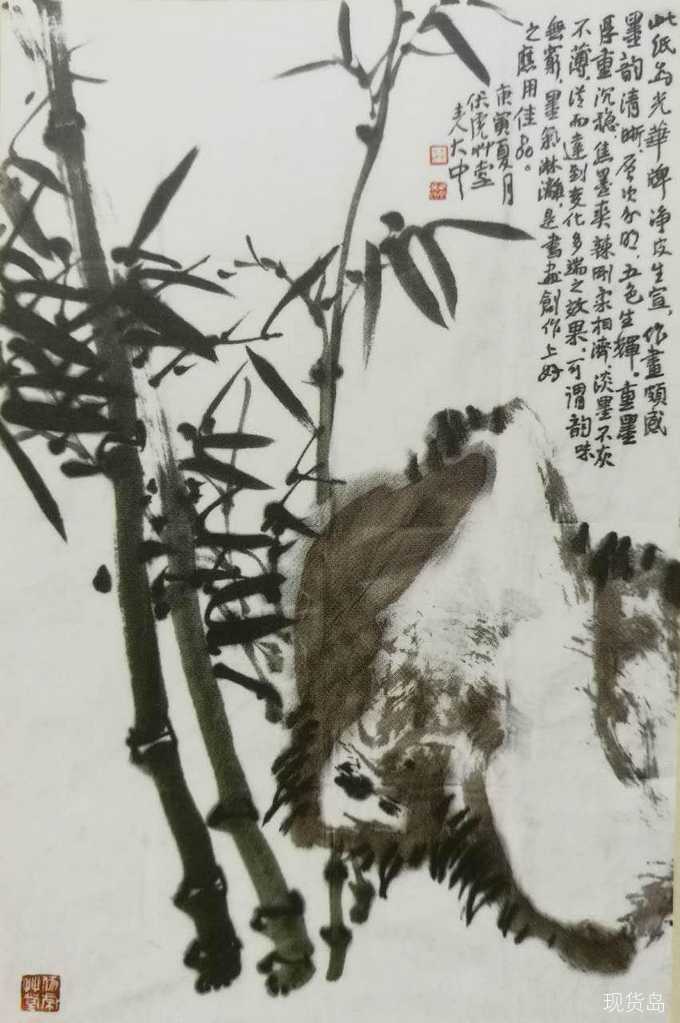 此纸为光華牌净皮生宣,作畫頗感
墨韵清晰層次分明,五色生輝。重墨
厚重沉穩焦墨爽辣剛柔相濟,淡墨不灰
不薄,從而達到变化多端之效果,可謂韵味
無窮,墨氣淋灕,是書画創作上好
之應用佳品。
庚寅夏月
伏虎草堂
夫大中
现货岛